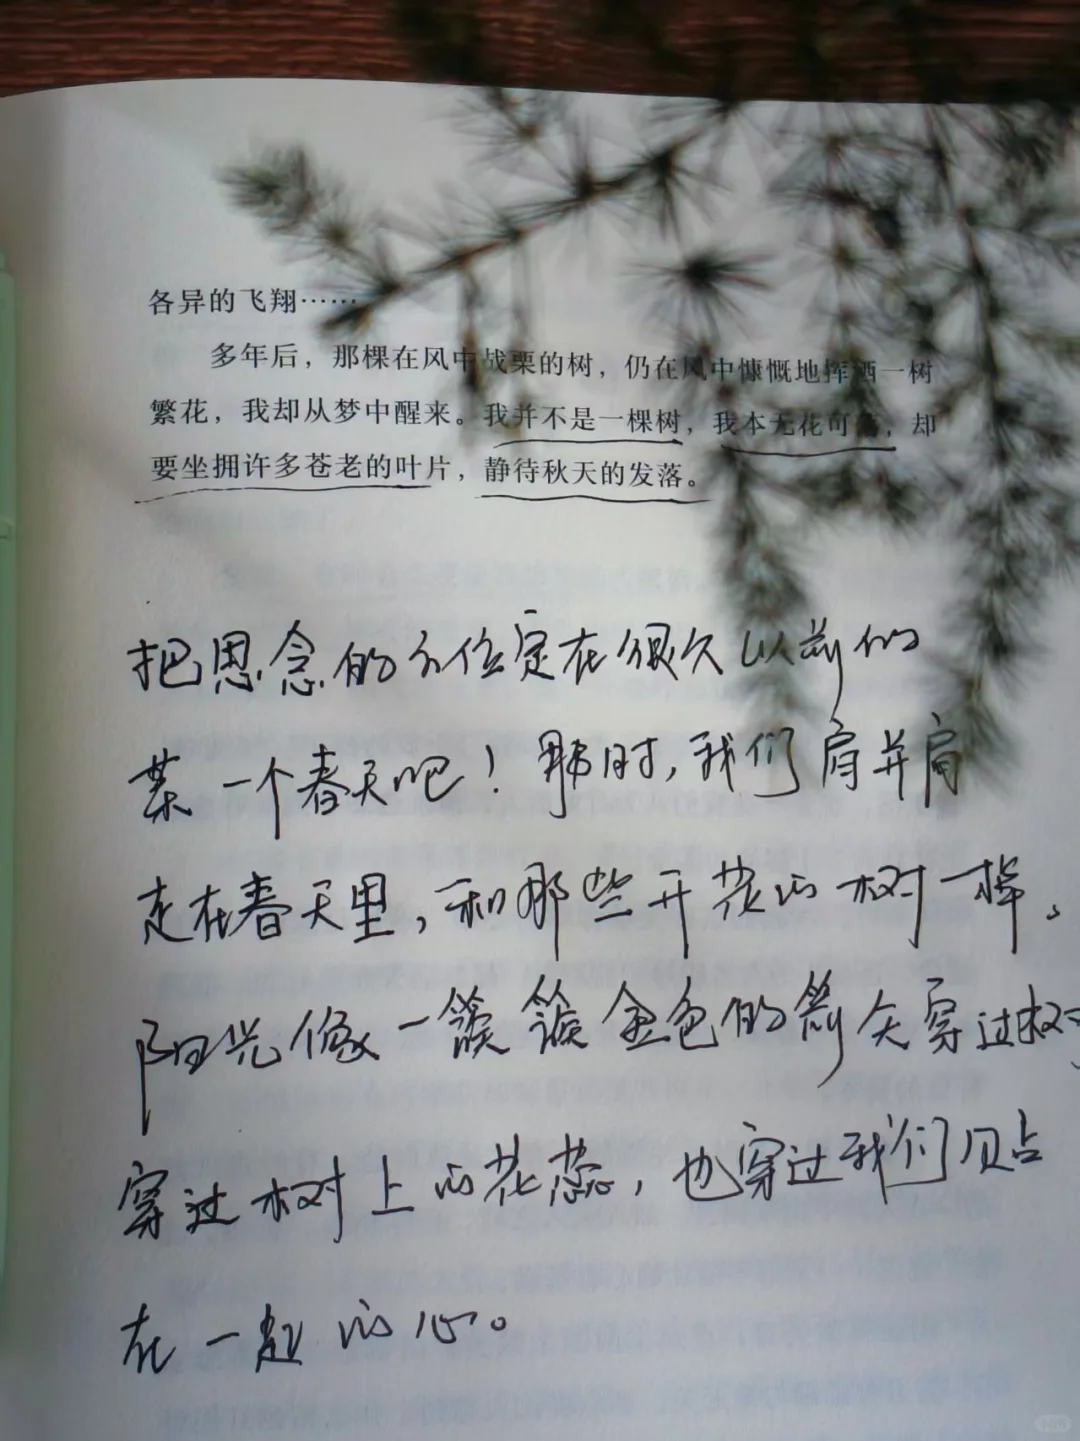 各异的飞翔……
多年后，那棵在风中战栗的树，仍在风中慷慨地挥洒一树
繁花，我却从梦中醒来。我并不是一棵树，我本无花可，却
要坐拥许多苍老的叶片，静待秋天的发落。
把思念的方位定在很久以前的
某一个春天吧！那时，我们肩并肩
走在春天里，和那些开花的树一样。
阳光像一簇簇金色的箭矢穿过树
穿过树上的花蕊，也穿过我们贴
在一起的心。